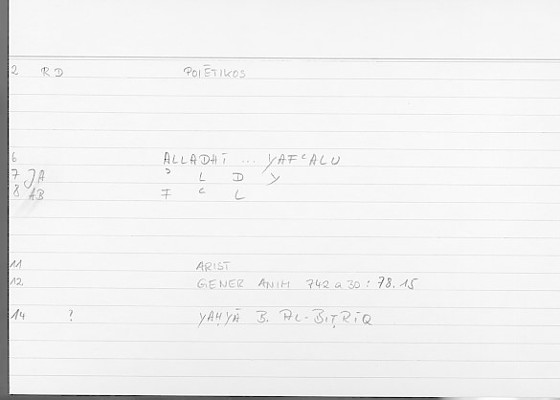 2 RD POIĒTIKOS
6 ALLADAĪ ... YAFʿALU
7 JA ʾ L D Y
8 AB F ʿ L
11 ARIST
12. GENER ANIM 742 a 30 : 78.15
14 ? YAḤYĀ B. AL-BIṬRĪQ